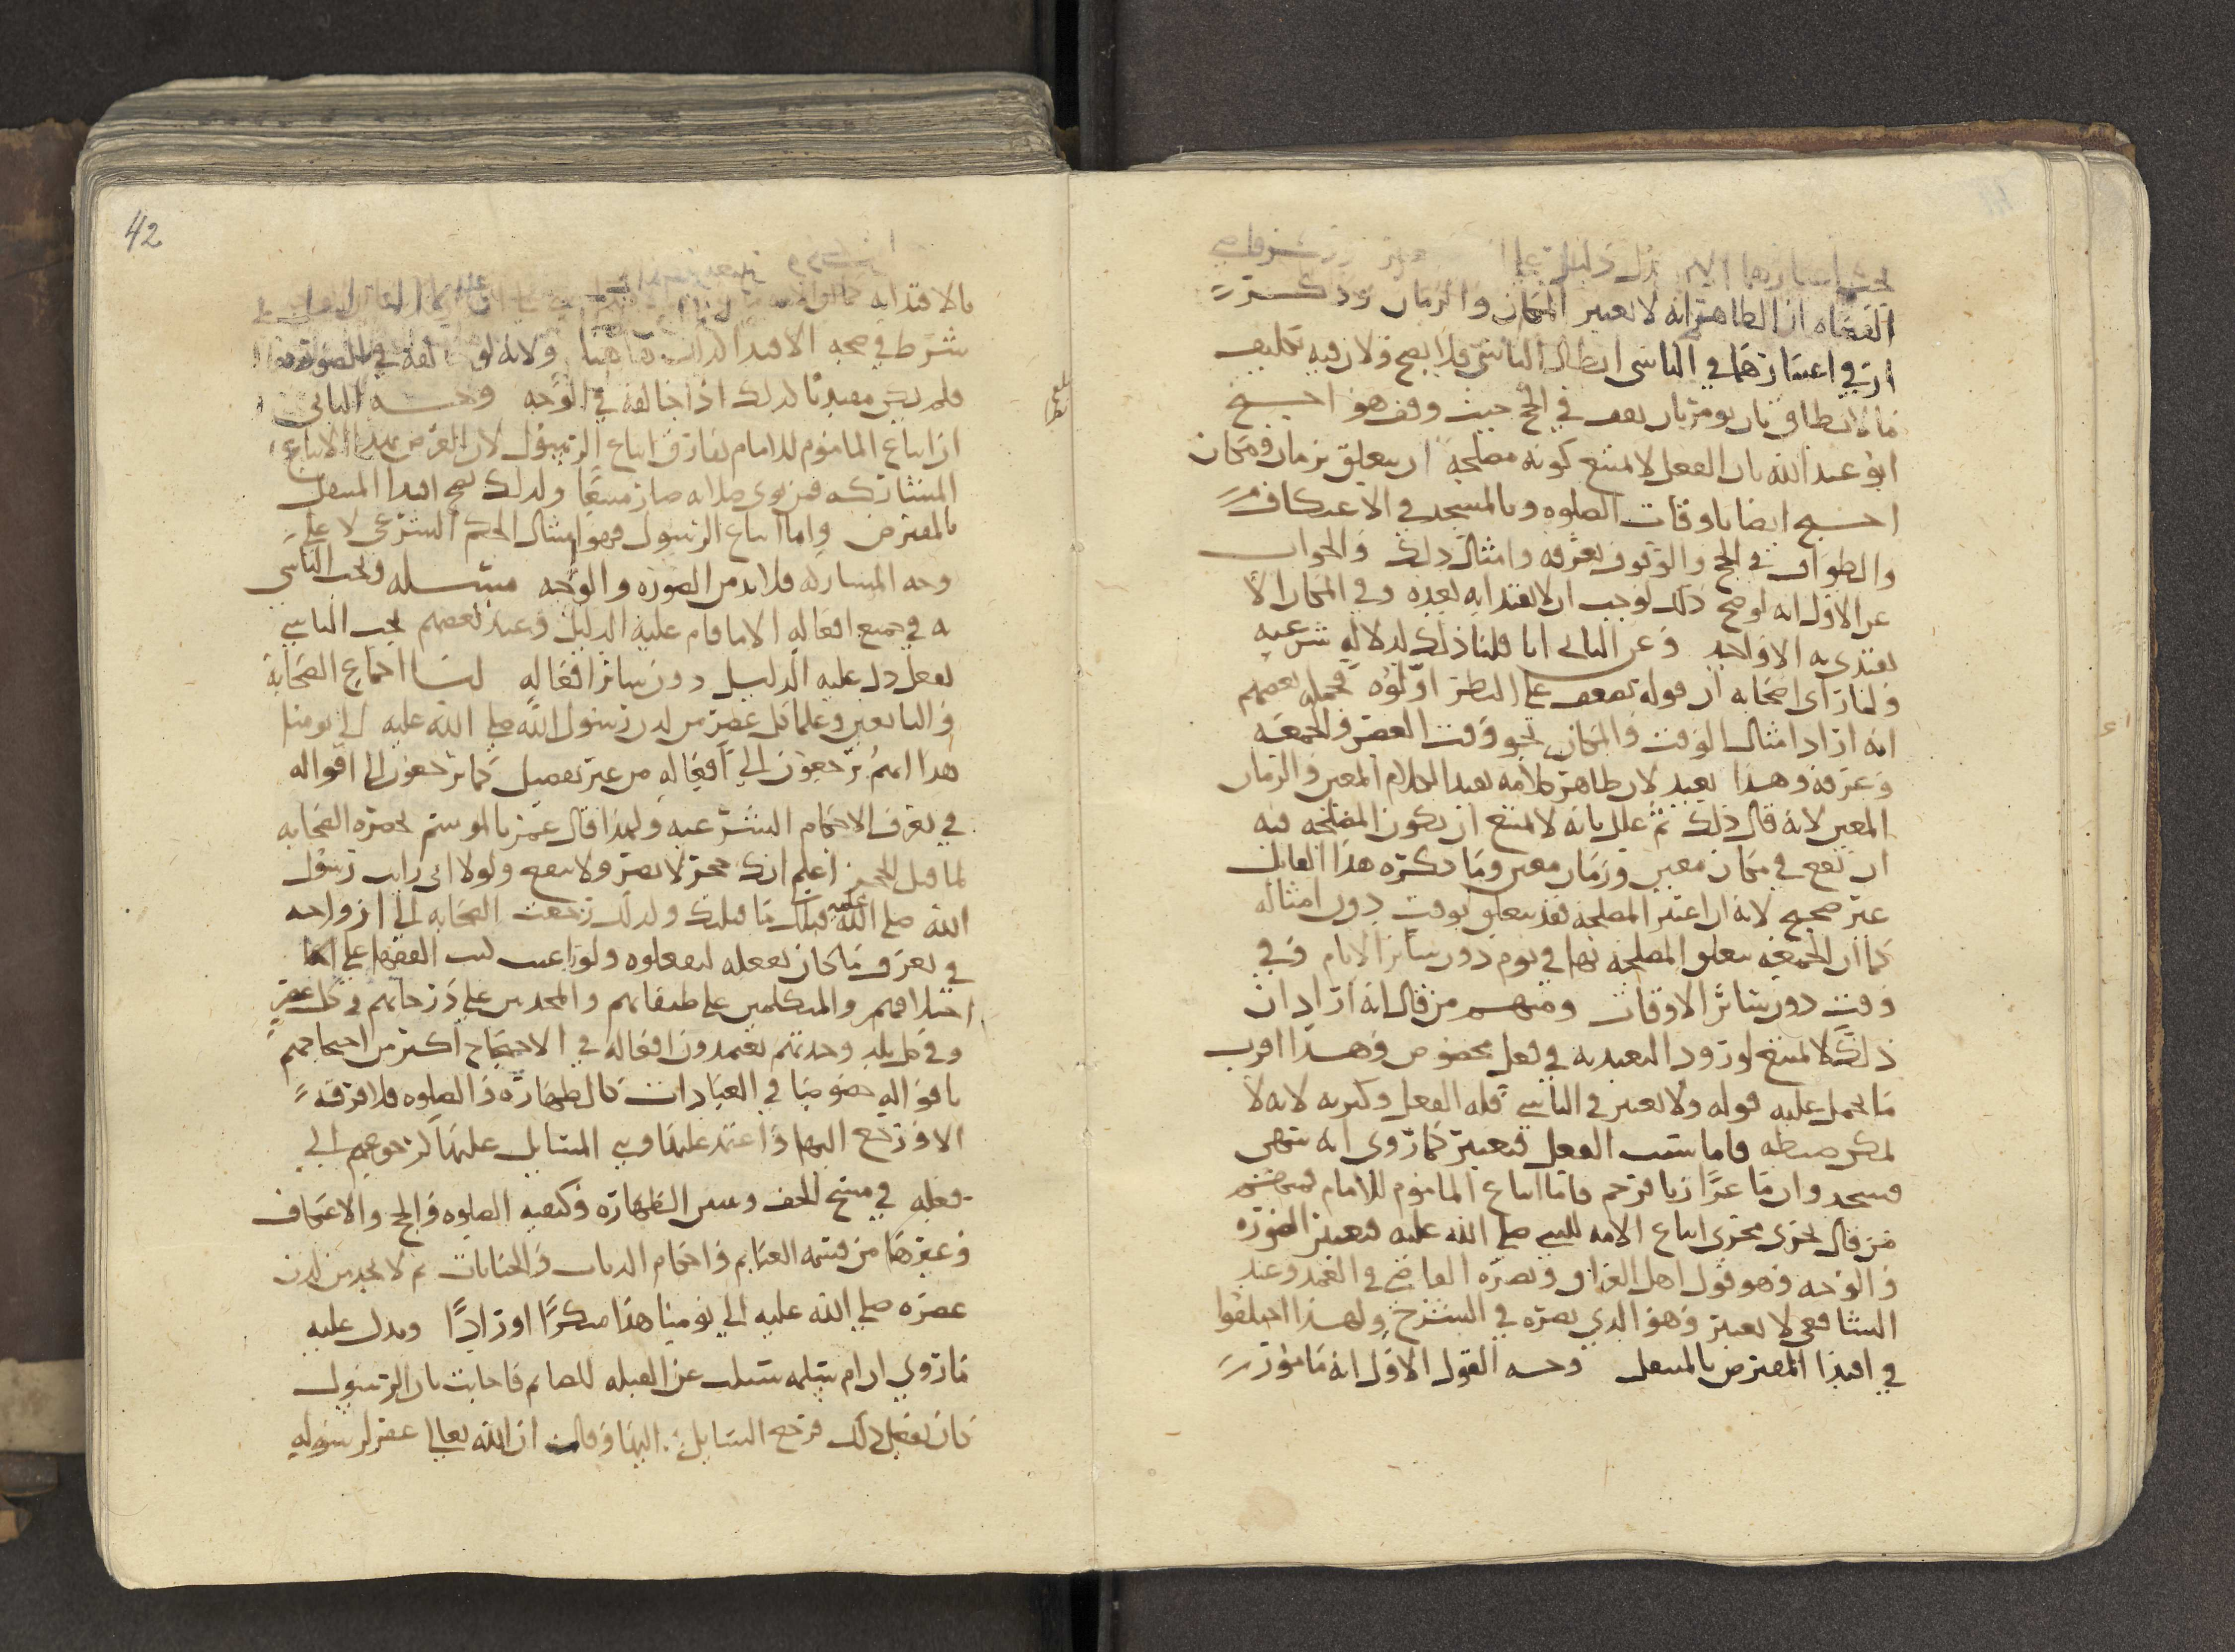 القضاه ان الظاهر انه لا يعتبر المكان والزمان وذكر
ان في اعتبارهما في التاسي ابطال التاسي فلا يصح ولان فيه تكليف
ما لا يطاق بان يومر بان يقف في الحج حيث وقف هو احتج
ابو عبد الله بان الفعل لا يمتنع كونه مصلحة ان يتعلق بزمان ومكان
احتج ايضا باوقات الصلوه وبالمسجد في الاعتكاف
والطواف في الحج والوقوف بعرفه وامثال ذلك والجواب
عن الاول انه لو صح ذلك لوجب ان لا يقتدا به بعده وفي المكان الا
يقتدي به الا واحد وعن الثاني انا قلنا ذلك لدلاله شرعيه
ولما راى اصحابه ان قوله تضعف على النظر اولوه فحمله بعضهم
انه اراد امثال الوقت والمكان نحو وقت العصر والجمعه
وعرفه وهذا بعيد لان ظاهر كلامه يفيد المكان المعين والزمان
المعين لانه قال ذلك ثم علل بانه لا يمتنع ان يكون المصلحه فيه
ان تقع في مكان معين وزمان معين وما ذكره هذا القائل
غير صحيح لانه ان اعتبر المصلحه فقد يتعلق بوقت دون امثاله
كما ان الجمعه يتعلق المصلحه بها في يوم دون سائر الايام وفي
وقت دون سائر الاوقات ومنهم من قال انه اراد ان
ذلك لا يمتنع لورود التعبد به في فعل مخصوص وهذا اقرب
ما يحمل عليه قوله ولا يعتبر في التاسي قله الفعل وكثرته لانه لا
يمكن ضبطه فاما سبب الفعل فيعتبر كما روي انه سهى
فسجد وان ماعزا زنا فرجم فاما اتباع الماموم للامام فمنهم
من قال يجري مجرى اتباع الامه للنبي صلى الله عليه فيعتبر الصوره
والوجه وهو قول اهل العراق ونصره القاضي في العمد وعند
الشافعي لا يعتبر وهو الذي نصره في الشرح ولهذا اختلفوا
في اقتدا المفترض بالمتنفل وجه القول الاول انه مامور
42
بالاقتدا به
شرط في صحه الاقتدا
فلم يكن مقتديا كذلك اذا خالفه في الوجه وجه الثاني
ان اتباع الماموم للامام يفارق اتباع الرسول لان الغرض بهذا الاتباع
المشاركه فمن نوى صلاته صار متبعا ولذلك يصح اقتدا المتنفل
بالمفترض واما اتباع الرسول فهو امتثال الحكم الشرعي لا على
وجه المشاركه فلا بد من الصوره والوجه مسئله ويجب التاسي
به في جميع افعاله الا ما قام عليه الدليل وعند بعضهم يجب التاسي
بفعل دل عليه الدليل دون سائر افعاله لنا اجماع الصحابه
والتابعين وعلما كل عصر من لدن رسول الله صلى الله عليه الى يومنا
هذا انهم يرجعون الى افعاله من غير تفصيل كما يرجعون الى اقواله
في تعرف الاحكام الشرعيه ولهذا قال عمر بالموسم بحضره الصحابه
لما قبل الحجر اعلم انك حجر لا تضر ولا تنفع ولولا اني رايت رسول
الله صلى الله عليه قبلك ما قبلتك ولذلك رجعت الصحابه الى ازواجه
في تعرف ما كان يفعله ليفعلوه ولو راعيت كتب الفقها على
اختلافهم والمتكلمين على طبقاتهم والمحدثين على درجاتهم في كل عصر
وفي كل بلد وجدتهم يعتمدون افعاله في الاحتجاج اكثر من احتجاجهم
باقواله خصوصا في العبادات كالطهاره والصلوه فلا فرقه
الا ورجع اليها واعتمد عليها وبنى المسايل عليها كرجوعهم الى
فعله في مسح الخف وسنن الطهاره وكيفيه الصلوه والحج والاعتكاف
وغيرها من قسمه الغنايم واحكام الديات والجنايات ثم لا تجد من لدن
عصره صلى الله عليه الى يومنا هذا منكرا او رادا ويدل عليه
ما روي ان ام سلمه سئلت عن القبله للصايم فاجابت بان الرسول
كان يفعل ذلك فرجع السايل اليها وقال ان الله تعالى غفر لرسوله